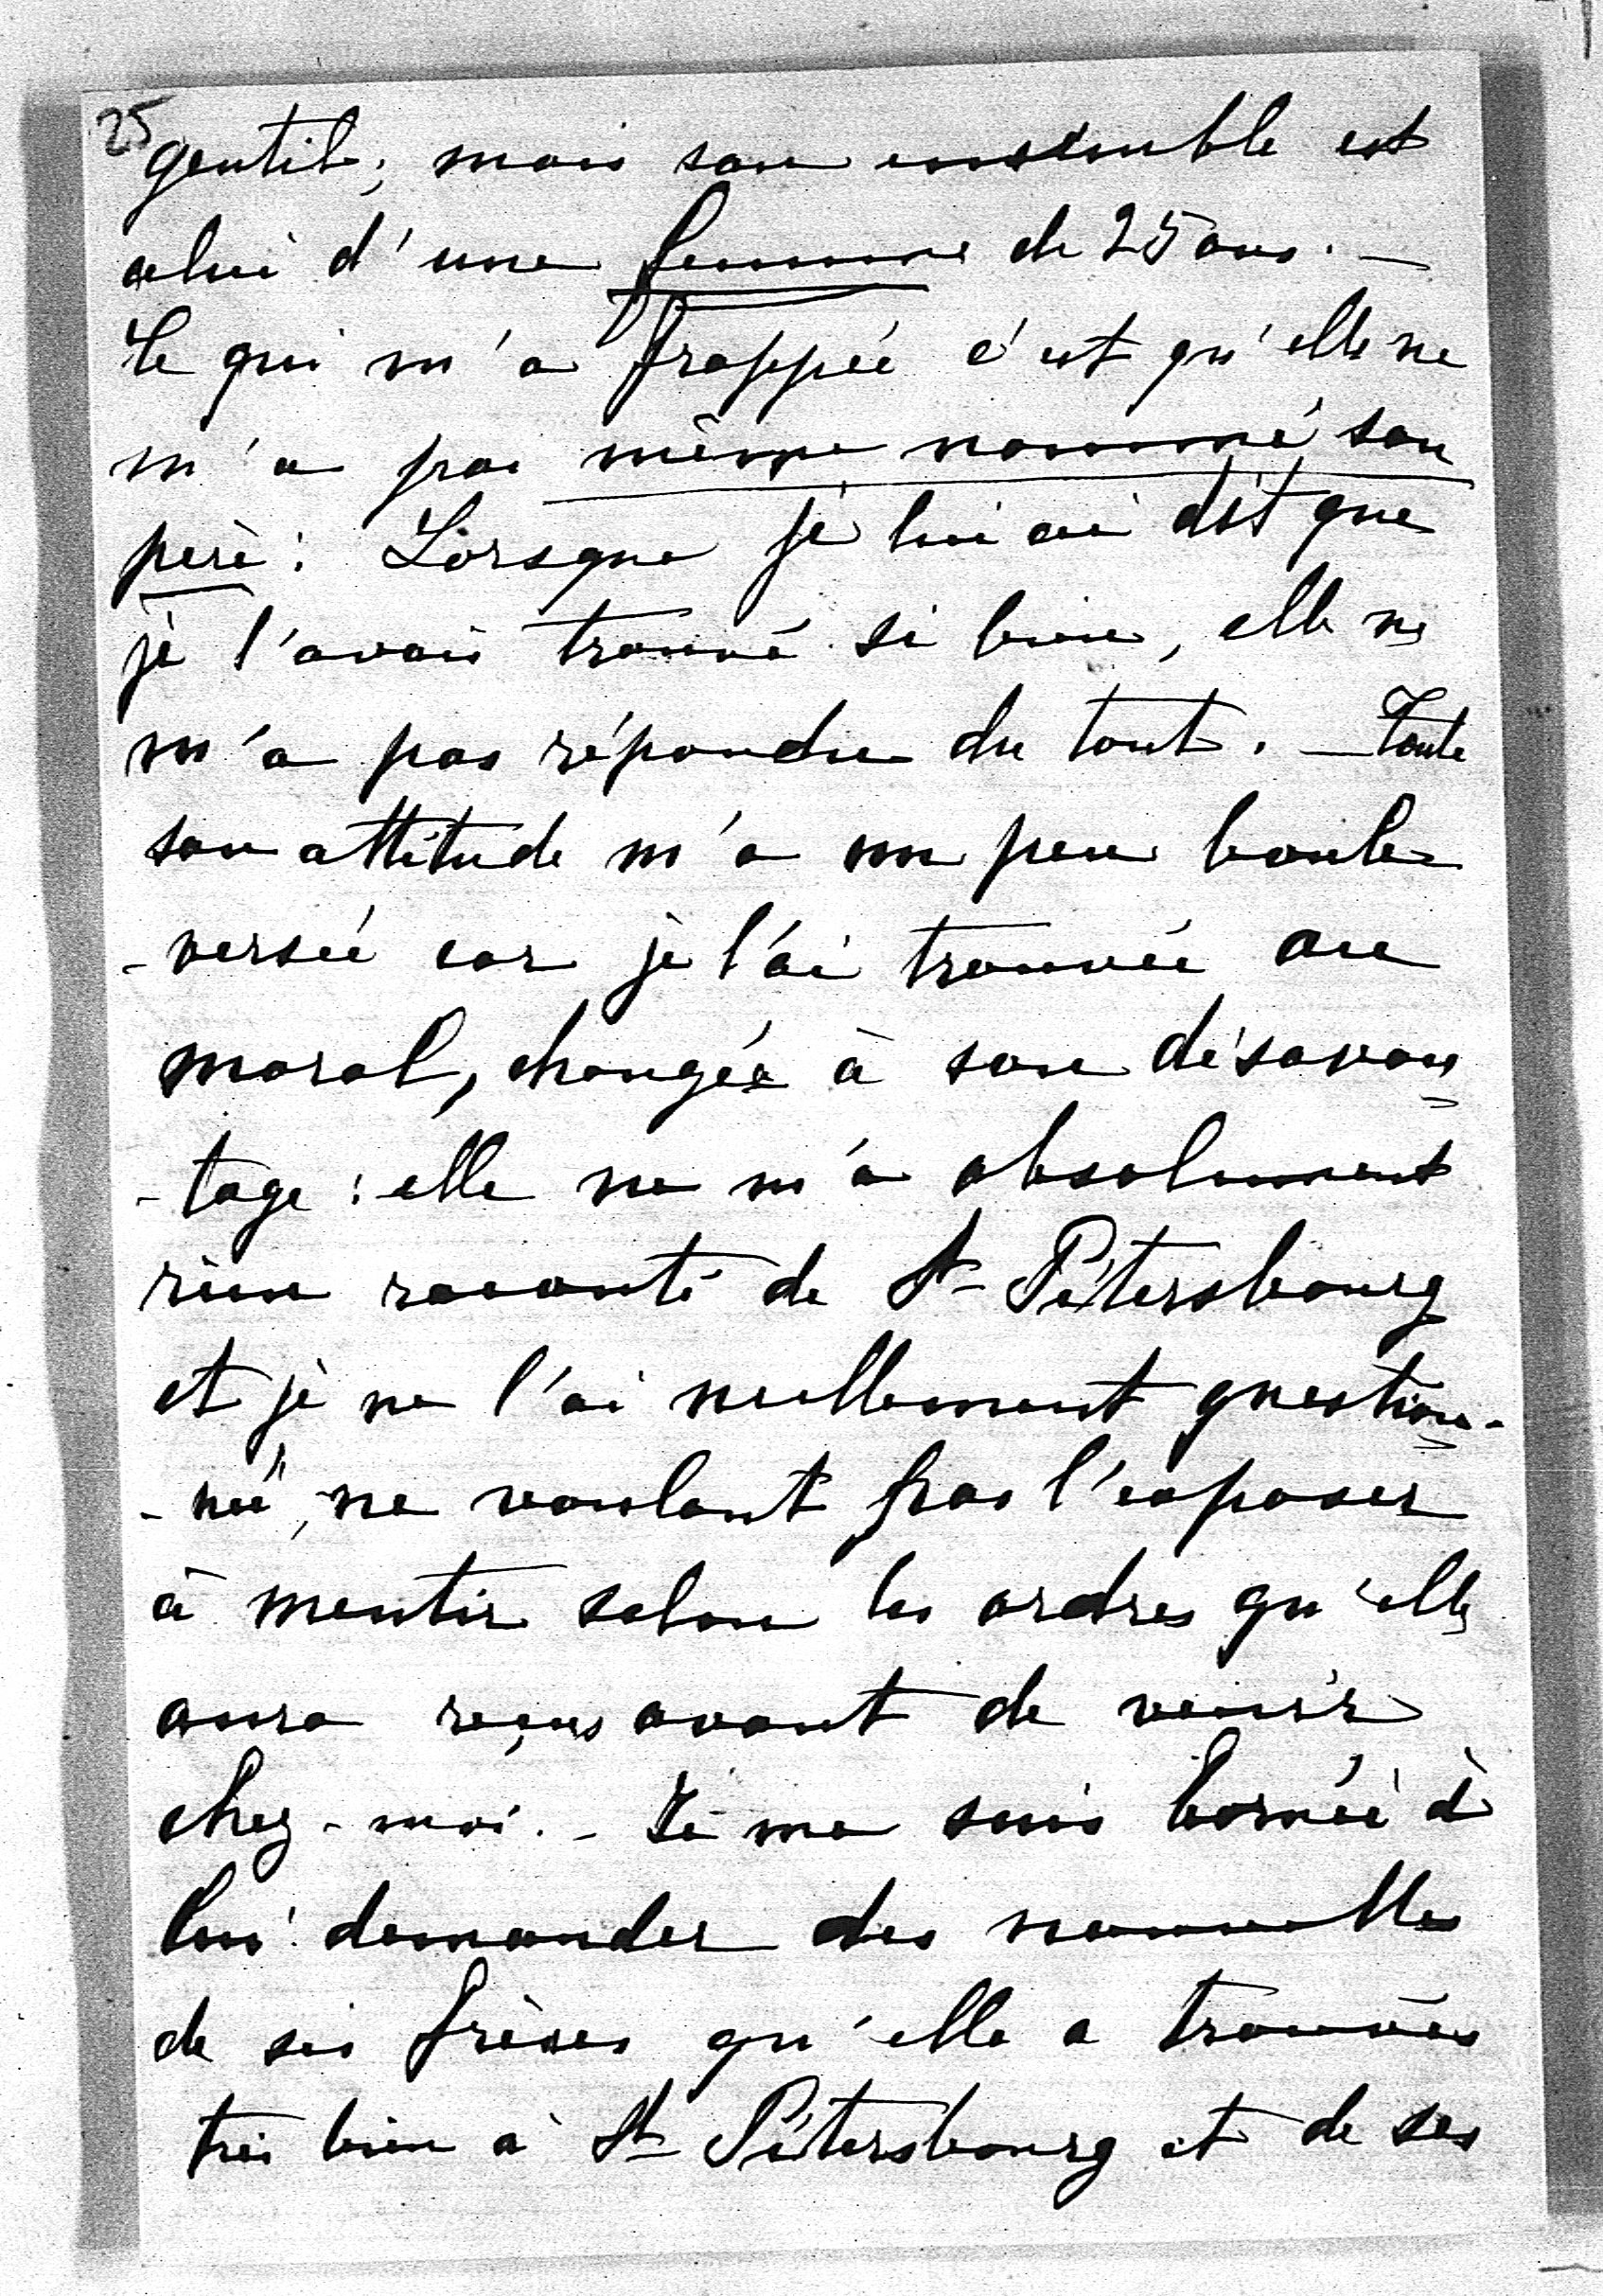 25
gentil; mais son ensemble est
celui d'une femme de 25 ans. —
Ce qui m'a frappée c'est qu'elle ne
m'a pas même nommé son
père: Lorsque je lui ai dit que
je l'avais trouvé si bien, elle ne
m'a pas répondu du tout. — Toute
son attitude m'a un peu boule-
-versée car je l'ai trouvée au
moral, changée à son désavan=
-tage: elle ne m'a absolument
rien raconté de St Pétersbourg
et je ne l'ai nullement question-
-née, ne voulant pas l'exposer
à mentir selon les ordres qu'elle
aura reçus avant de venir
chez-moi. - Je me suis bornée à
lui demander des nouvelles
de ses frères qu'elle a trouvés
très bien à St Pétersbourg et de ses